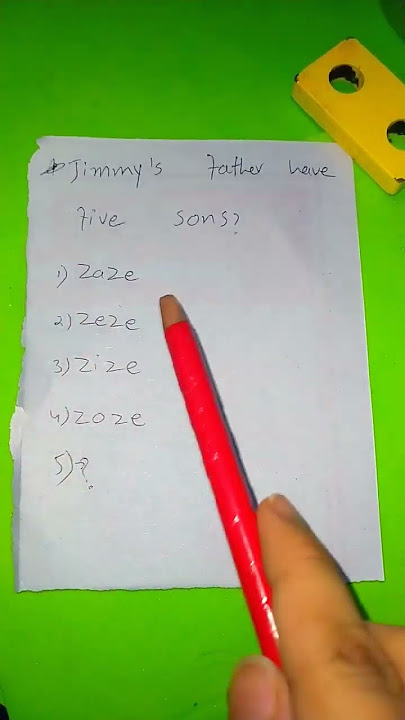 Jimmy's Father have
Five sons?
1) Zaze
2) Zeze
3) Zize
4) Zoze
5) ?